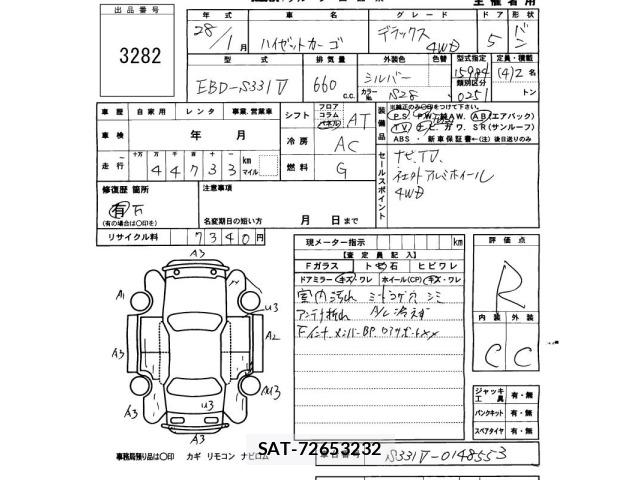 出品番号
3282
主催者用
年式 車名 グレード ドア 形状
28/1月 ハイゼットカーゴ デラックス 4WD 5 バン
型式 排気量 外装色 色替 型式指定 定員・積載
EBD-S331V 660 c.c. シルバー カラーNo. S28 (4)2名
類別区分 トン
車歴 自家用 レンタ 事業.営業車
車検 年 月
走行 十万 万 千 百 十 一 km マイル
44733
シフト フロア コラム パネル AT
冷房 AC
燃料 G
装備品 ※純正のみ○印をつけて下さい。
P.S. P.W. 純AW. AB(エアバック)
T.V. ナビ. カワ. SR(サンルーフ)
ABS ・新車保証書←(注)後日送りのみ
セールスポイント
ナビ.TV.
社外アルミホイール
4WD
修復歴 箇所
有 石
(有の場合は○印を)
注意事項
名変期日の短い方 月 日まで
リサイクル料 7340円
現メーター指示 km
【査定員記入】
Fガラス トビ石 ヒビワレ
ドアミラー キズ・ワレ ホイール(CP) キズ・ワレ
室内汚れ シートコゲ穴 シミ
アンテナ折れ
評価点
R
内装 外装
C C
A3
A1
U3
A3
A2
A3
U3
A3
ジャッキ工具 有・無
パンクキット 有・無
スペアタイヤ 有・無
事務局預り品は○印 カギ リモコン ナビロム
SAT-72653232
車台番号 S331V-0148553